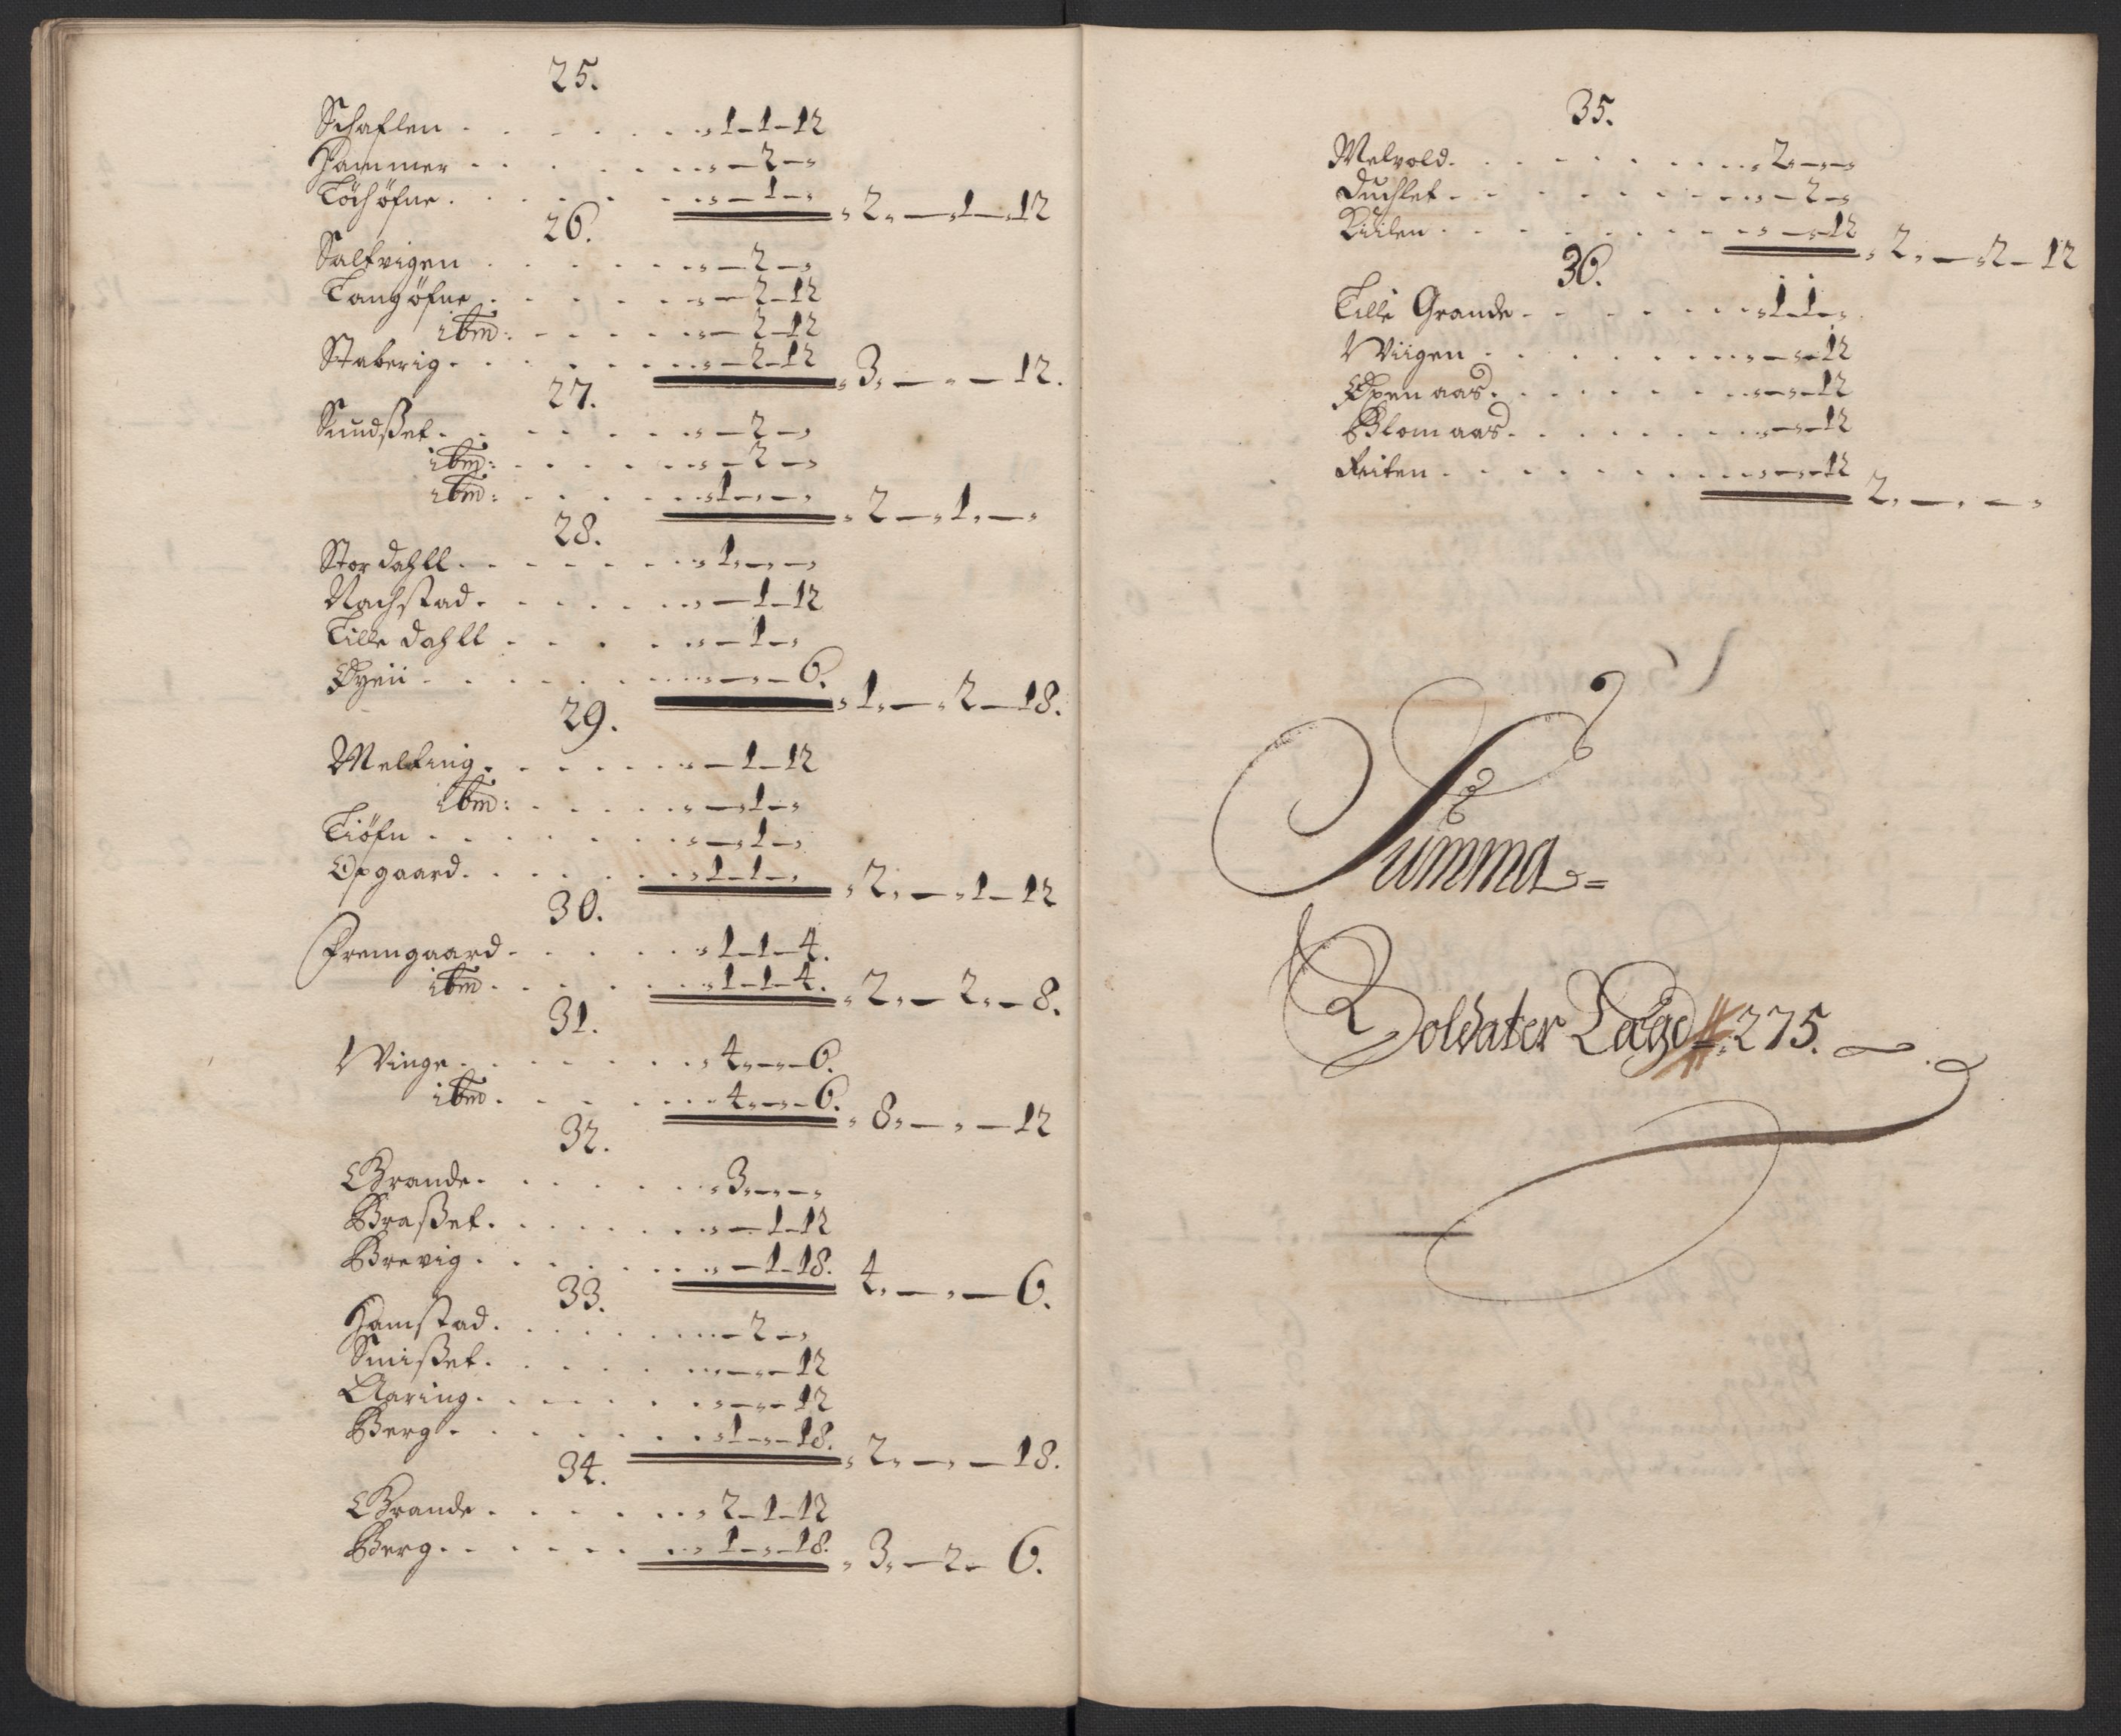 25.
Schaflen . . . . . . . „ 1 – 1 – 12
Hammer . . . . . . „ – 2 – „
Töchöfne . . . . . . „ – 1 – „ „ 2 „ – „ 1 – „ 12
26.
Saltvigen . . . . . . „ – 2 – „
Tangöfne . . . . . . „ – 2 – 12
ibm: . . . . . „ – 2 – 12
Staberig . . . . . . „ – 2 – 12 „ 3 „ – „ – 12.
27.
Sundsßet . . . . . . „ – 2 – „
ibm: . . . . . „ – 2 – „
ibm: . . . . . „ 1 – „ – „ „ 2 – „ 1 „ – „
28.
Stor dahll . . . . . . „ 1 – „ – „
Nachstad . . . . . . „ – 1 – 12
Lille dahll . . . . . „ – 1 – „
Øyeii . . . . . . „ – „ – 6. „ 1 „ – „ 2 – 18.
29.
Melting . . . . . . „ – 1 – 12
ibm: . . . . . „ – „ 1 – „
Tiöfn . . . . . . „ – „ 1 – „
Opgaard . . . . . . „ 1 – 1 – „ „ 2 „ – „ 1 – 12
30.
Fremgaard . . . . . . „ 1 – 1 – 4.
ibm . . . . . „ 1 – 1 – 4. „ 2 „ – 2 „ – 8.
31.
Winge . . . . . . „ 4 „ – „ – 6.
ibm . . . . . „ 4 „ – „ – 6. „ 8 „ – „ – 12
32.
Grande . . . . . . „ 3 „ – „ – „
Graßet . . . . . . „ – 1 – 12
Brevig . . . . . . „ – 1 – 18. 4 „ – „ – 6.
33.
Hamstad . . . . . . „ – 2 – „
Smißet . . . . . . „ – „ – 12
Aaring . . . . . . „ – „ – 12
Berg . . . . . . „ 1 – „ – 18. „ 2 „ – „ – 18.
34.
Grande . . . . . . „ 2 – 1 – 12
Berg . . . . . . „ 1 – „ – 18. „ 3 „ – 2 – 6.
35.
Melvold . . . . . . „ 2 „ – „ – „
Duchlet . . . . . . „ – 2 – „
Kiilen . . . . . . „ – „ – 12 „ 2 „ – „ 2 – 12
36.
Lille Grande . . . . . . „ 1 – 1 – „
Wiigen . . . . . . „ – „ – 12
Øxenaas . . . . . . „ – „ – 12
Blomaas . . . . . . „ – „ – 12
Reiten . . . . . . „ – „ – 12 2 „ – „ – „
Summa =
Soldater Lægd = 275.